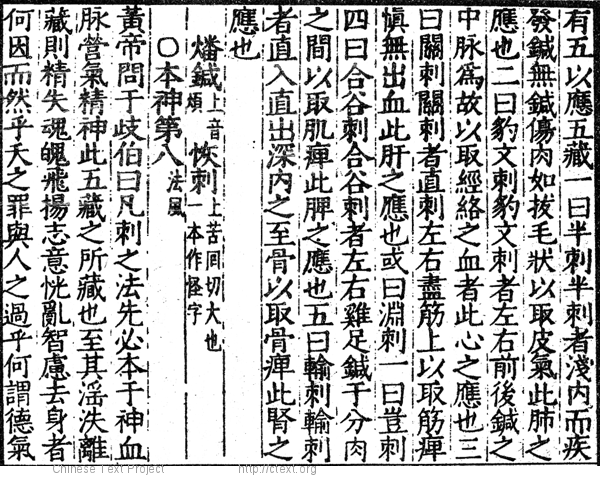 有五以應五藏一曰半刺半刺者淺内而疾
發鍼無鍼傷肉如拔毛狀以取皮氣此肺之
應也二曰豹文刺豹文刺者左右前後鍼之
中脉爲故以取經絡之血者此心之應也三
曰關刺關刺者直刺左右盡筋上以取筋痺
愼無出血此肝之應也或曰淵刺一曰豈刺
四曰合谷刺合谷刺者左右雞足鍼于分肉
之間以取肌痺此脾之應也五曰輸刺輸刺
者直入直出深内之至骨以取骨痺此腎之
應也
燔鍼上音煩 恢刺上苦回切大也一本作怪字
○本神第八法風
黃帝問于歧伯曰凡刺之法先必本于神血
脉營氣精神此五藏之所藏也至其淫泆離
藏則精失魂魄飛揚志意恍亂智慮去身者
何因而然乎天之罪與人之過乎何謂德氣
Chinese Text Project http://ctext.org